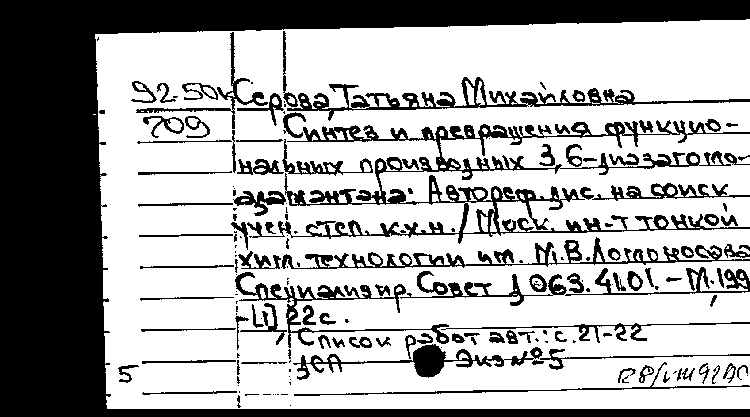 92-50к Серова, Татьяна Михайловна
709 Синтез и превращения функцио-
нальных производных 3,6-диазагомо-
адамантана: Автореф. дис. на соиск
учен. степ. к.х.н. / Моск. ин-т тонкой
хим. технологии им. М.В.Ломоносова
Специализир. Совет Д 063.41.01. - М., 199
-[1], 22 с.
Список работ авт.: с.21-22
ДСП Экз №5
5